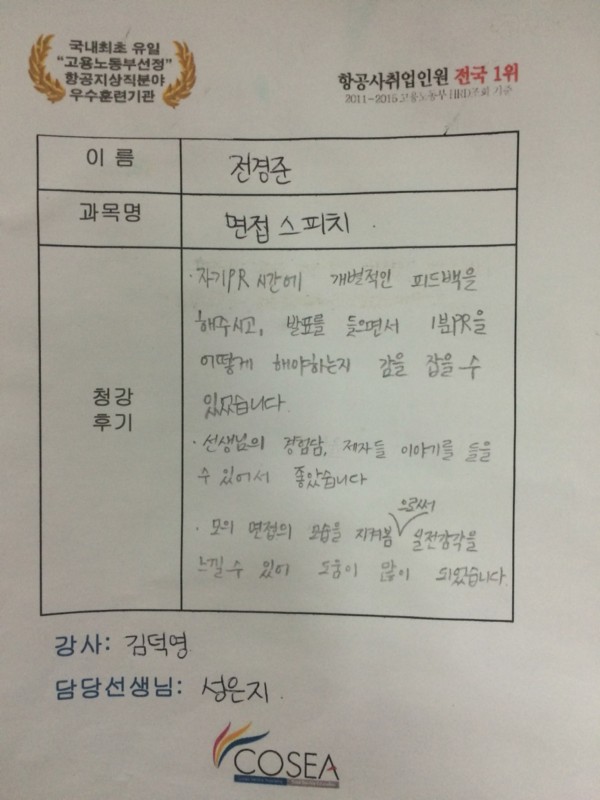 국내최초 유일
“고용노동부선정”
항공지상직분야
우수훈련기관
항공사취업인원 전국 1위
2011~2015 고용노동부 HRD조회 기준
이 름
전경준
과목명
면접 스피치.
청강
후기
· 자기PR 시간에 개별적인 피드백을
해주시고, 발표를 들으면서 1분PR을
어떻게 해야하는지 감을 잡을 수
있었습니다.
· 선생님의 경험담, 제자들 이야기를 들을
수 있어서 좋았습니다
으로써
· 모의 면접의 모습을 지켜봄 실전감각을
느낄 수 있어 도움이 많이 되었습니다.
강사: 김덕영
담당선생님: 성은지.
COSEA